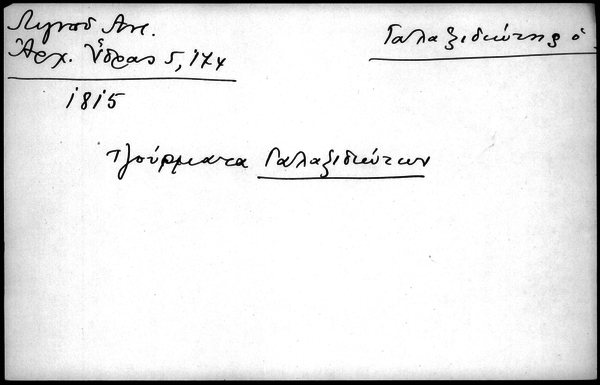 Λιγνοῦ Ἀντ.
Ἀρχ. Ὕδρας 5, 174
Γαλαξιδιώτης ὁ
1815
τζούρματα Γαλαξιδιώτων